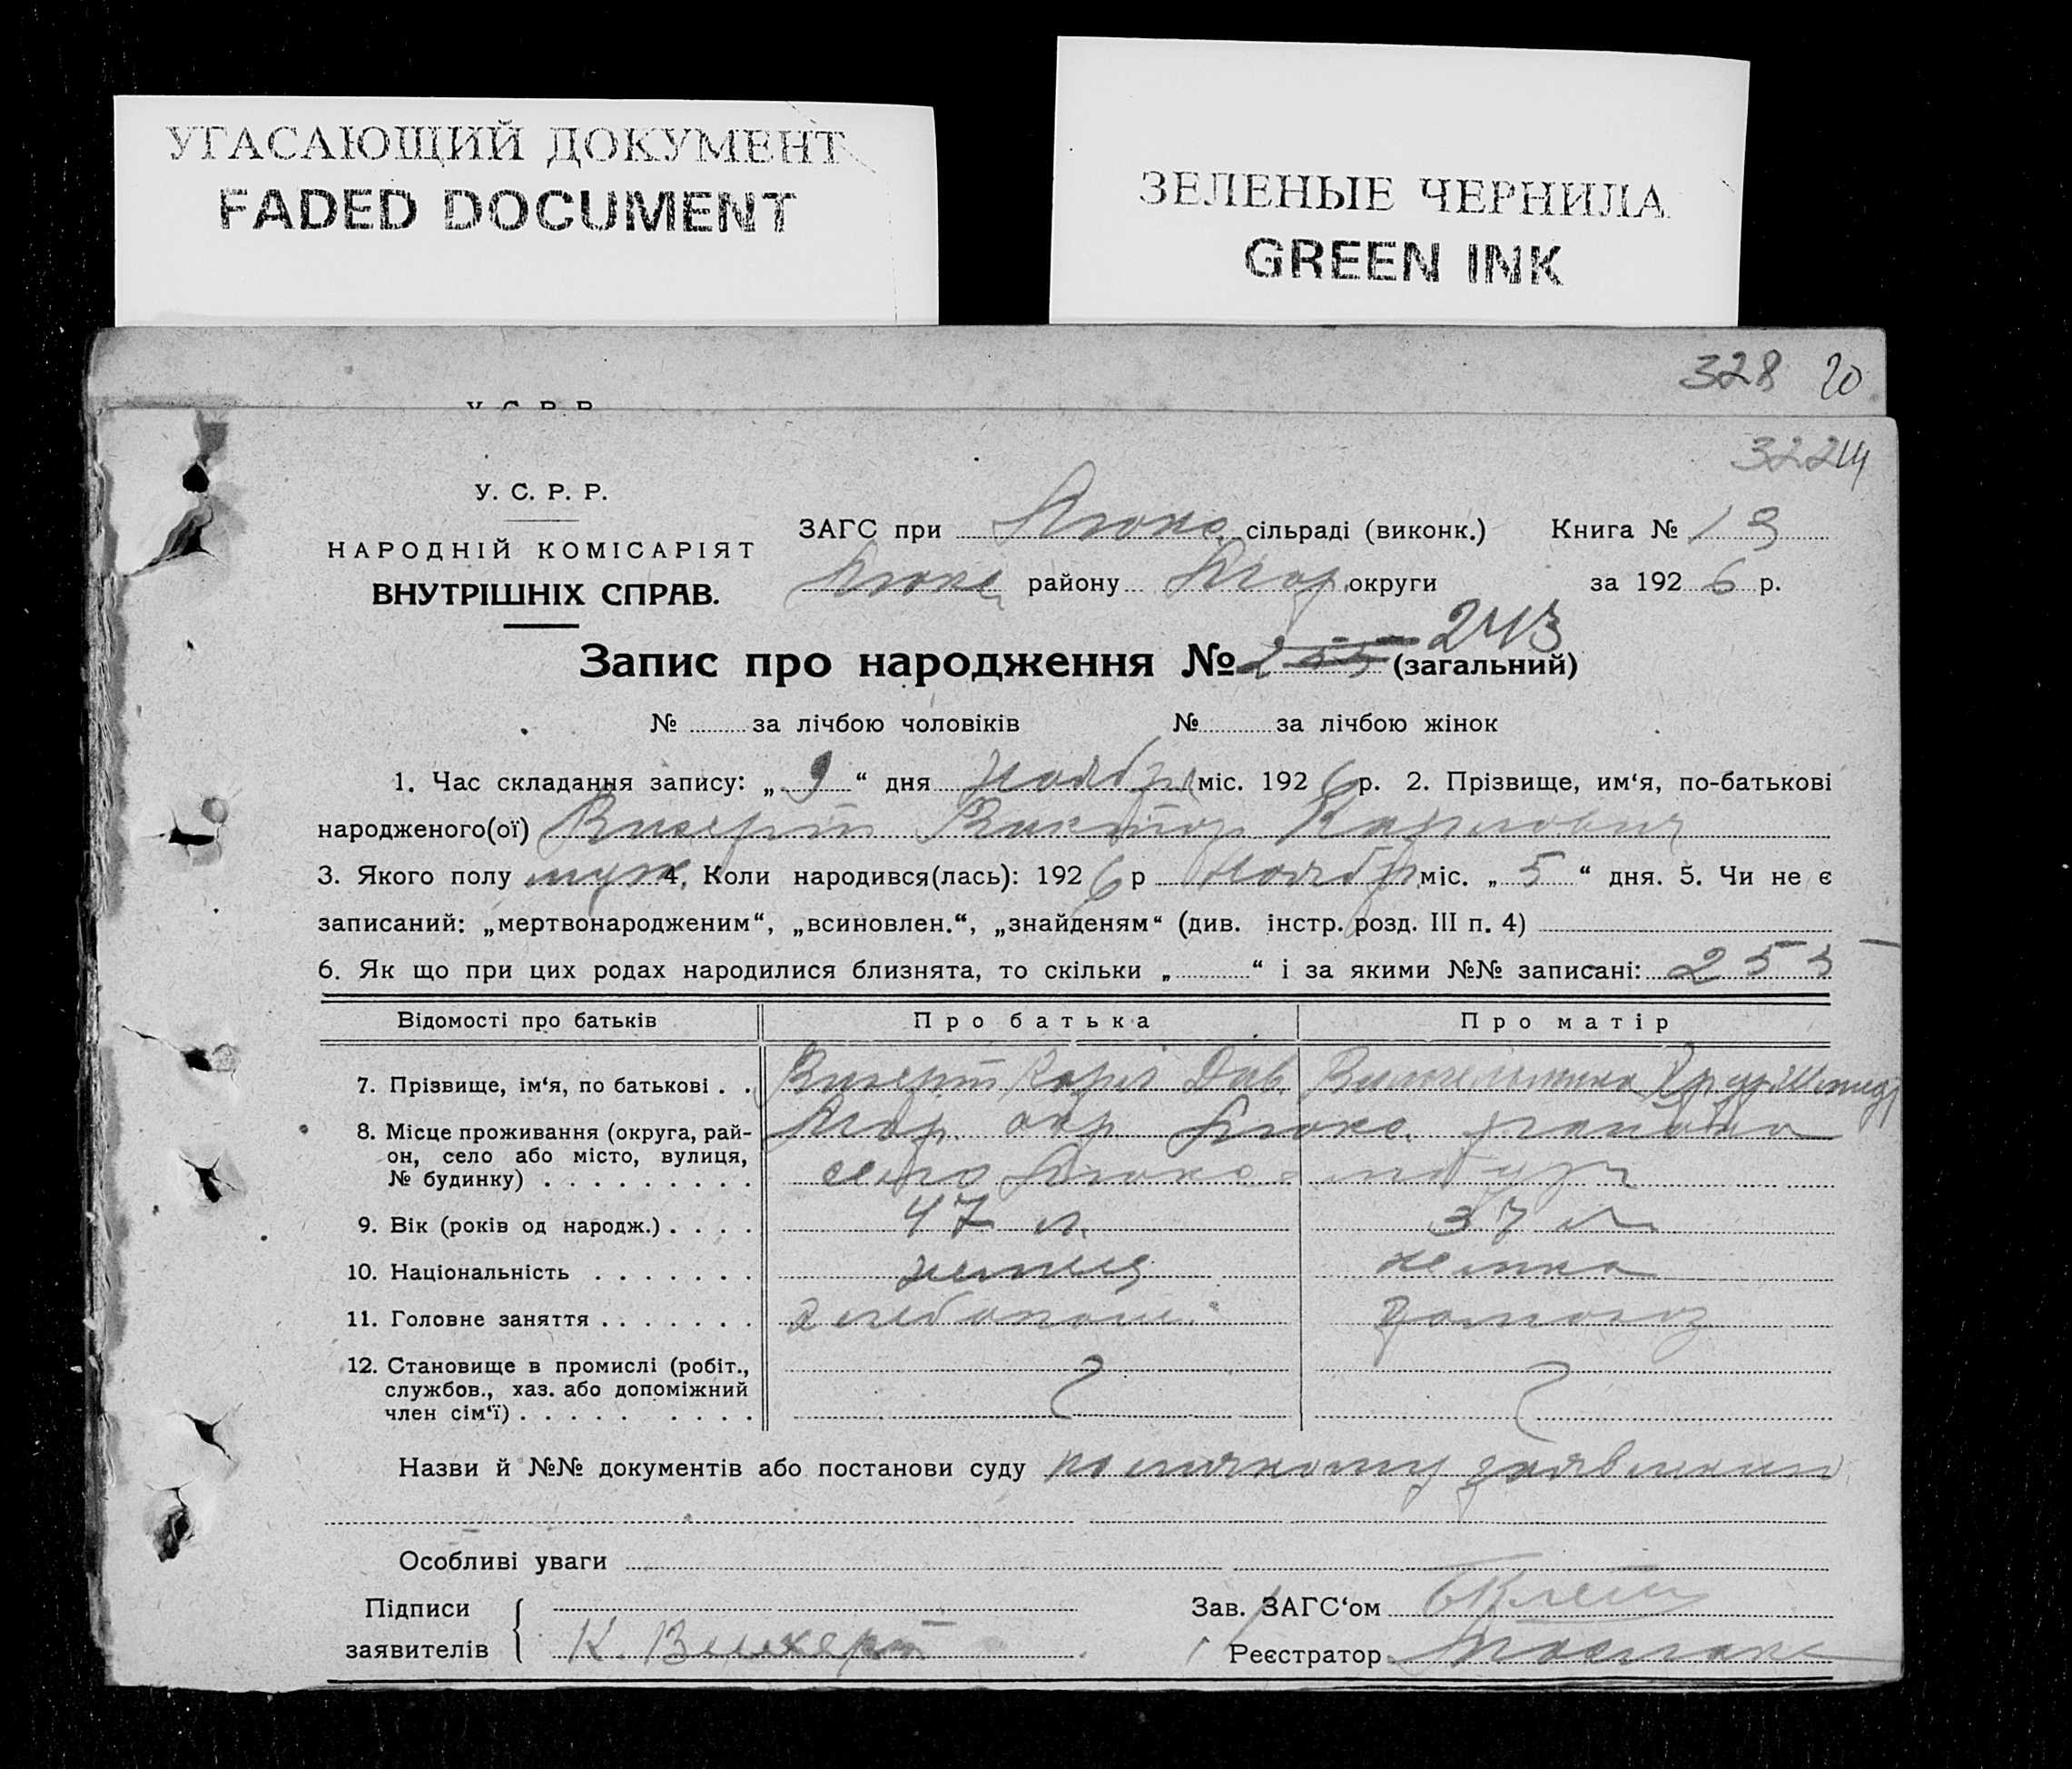 УГАСАЮЩИЙ ДОКУМЕНТ
FADED DOCUMENT
ЗЕЛЕНЫЕ ЧЕРНИЛА
GREEN INK
328 20
У. С. Р. Р.
322 14
У. С. Р. Р.
НАРОДНІЙ КОМІСАРІЯТ
ВНУТРІШНІХ СПРАВ.
ЗАГС при Люкс. сільраді (виконк.) Книга № 13
Люкс. району Мар. округи за 1926 р.
Запис про народження № 255 243 (загальний)
№ за лічбою чоловіків № за лічбою жінок
1. Час складання запису: „ 9 “ дня Ноября міс. 1926 р. 2. Прізвище, им‘я, по-батькові
народженого(ої) Вихерт Виктор Карлович
3. Якого полу муж. 4. Коли народився(лась): 1926 р Ноябр. міс. „ 5 “ дня. 5. Чи не є
записаний: „мертвонародженим“, „всиновлен.“, „знайденям“ (див. інстр. розд. III п. 4)
6. Як що при цих родах народилися близнята, то скільки „ “ і за якими №№ записані: 255
Відомості про батьків Про батька Про матір
7. Прізвище, ім‘я, по батькові . . Вихерт Карл Дав.
8. Місце проживання (округа, рай- Мар. окр Люкс. района
он, село або місто, вулиця,
№ будинку) . . . . . . . . . село Люксембург
9. Вік (років од народж.) . . . . 47 л. 37 л
10. Національність . . . . . . . немец немка
11. Головне заняття . . . . . . . хлебопаш. домохоз
12. Становище в промислі (робіт.,
службов., хаз. або допоміжний
член сім‘ї) . . . . . . . . .
Назви й №№ документів або постанови суду по личному заявлению
Особливі уваги
Підписи Зав. ЗАГС‘ом
заявителів К. Вихерт Реєстратор